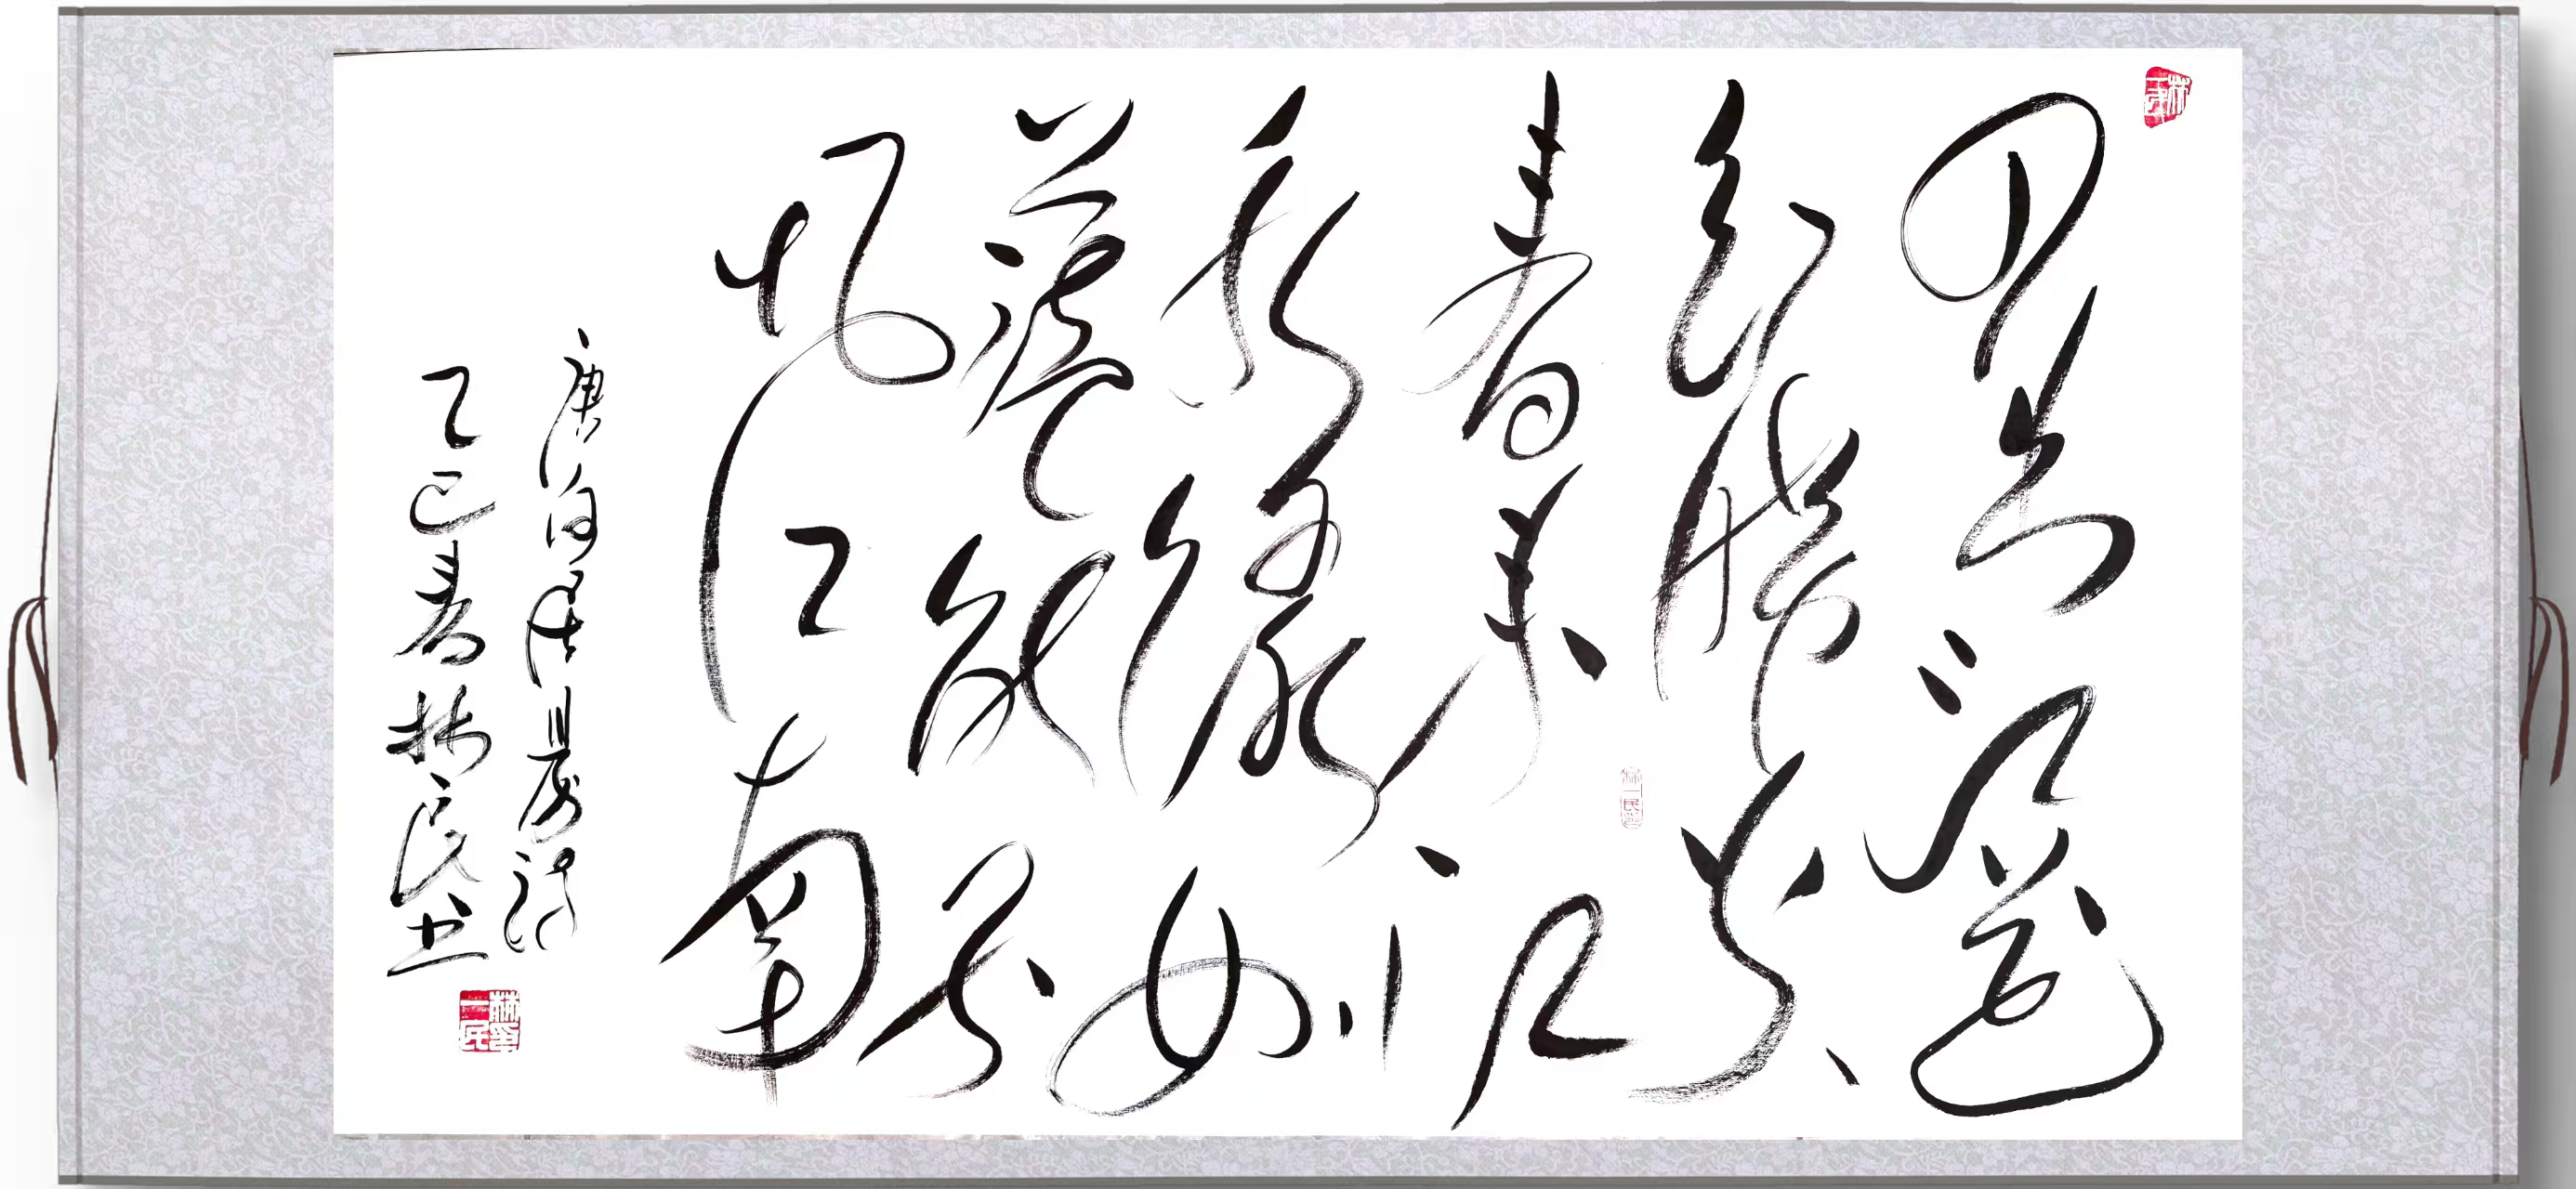 日出江花
红胜火
春来江
水绿如
蓝能不
忆江南
唐白居易诗
乙巳春林一民书
林一民印